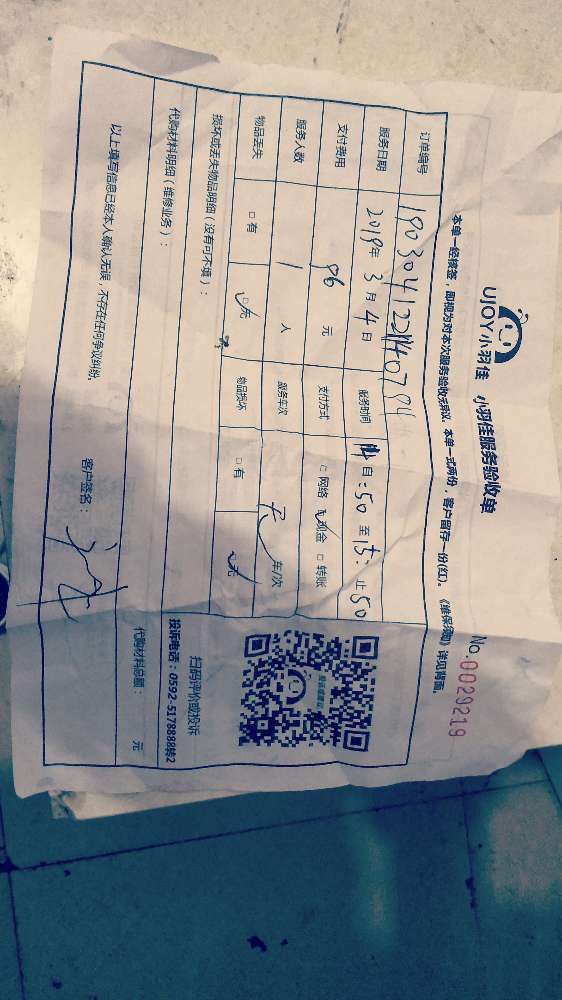 UJOY小羽佳 小羽佳服务验收单
No.0029219
本单一经接签，即视为对本次服务验收无异议。本单一式两份，客户留存一份(红)。《维保须知》详见背面。
订单编号
服务日期 2019年3月4日 服务时间 自 :50 至15:50止
支付费用 96 元 支付方式 □网络 ☑现金 □转账
服务人数 1 人 服务车次 车/次
物品丢失 □有 ☑无 物品损坏 □有 ☑无
损坏或丢失物品明细（没有可不填）：
扫码评价或投诉
投诉电话：0592-5178888转2
代购材料明细（维修业务）：
代购材料总额： 元
以上填写信息已经本人确认无误，不存在任何争议纠纷。
客户签名：